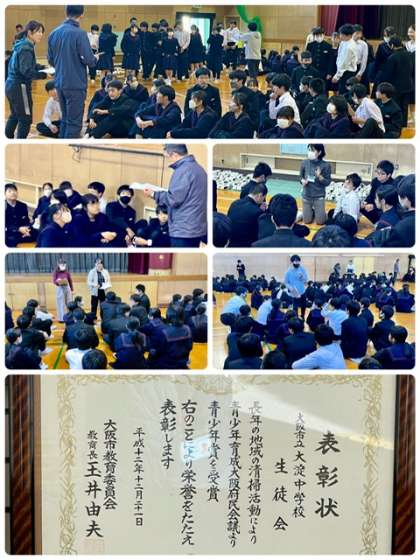 表彰状
大阪市立大淀中学校
生徒会
長年の地域の清掃活動により
青少年育成大阪府民会議より
青少年賞を受賞
右のことにより栄誉をたたえ
表彰します
平成十二年十二月二十一日
大阪市教育委員会
教育長 玉井由夫